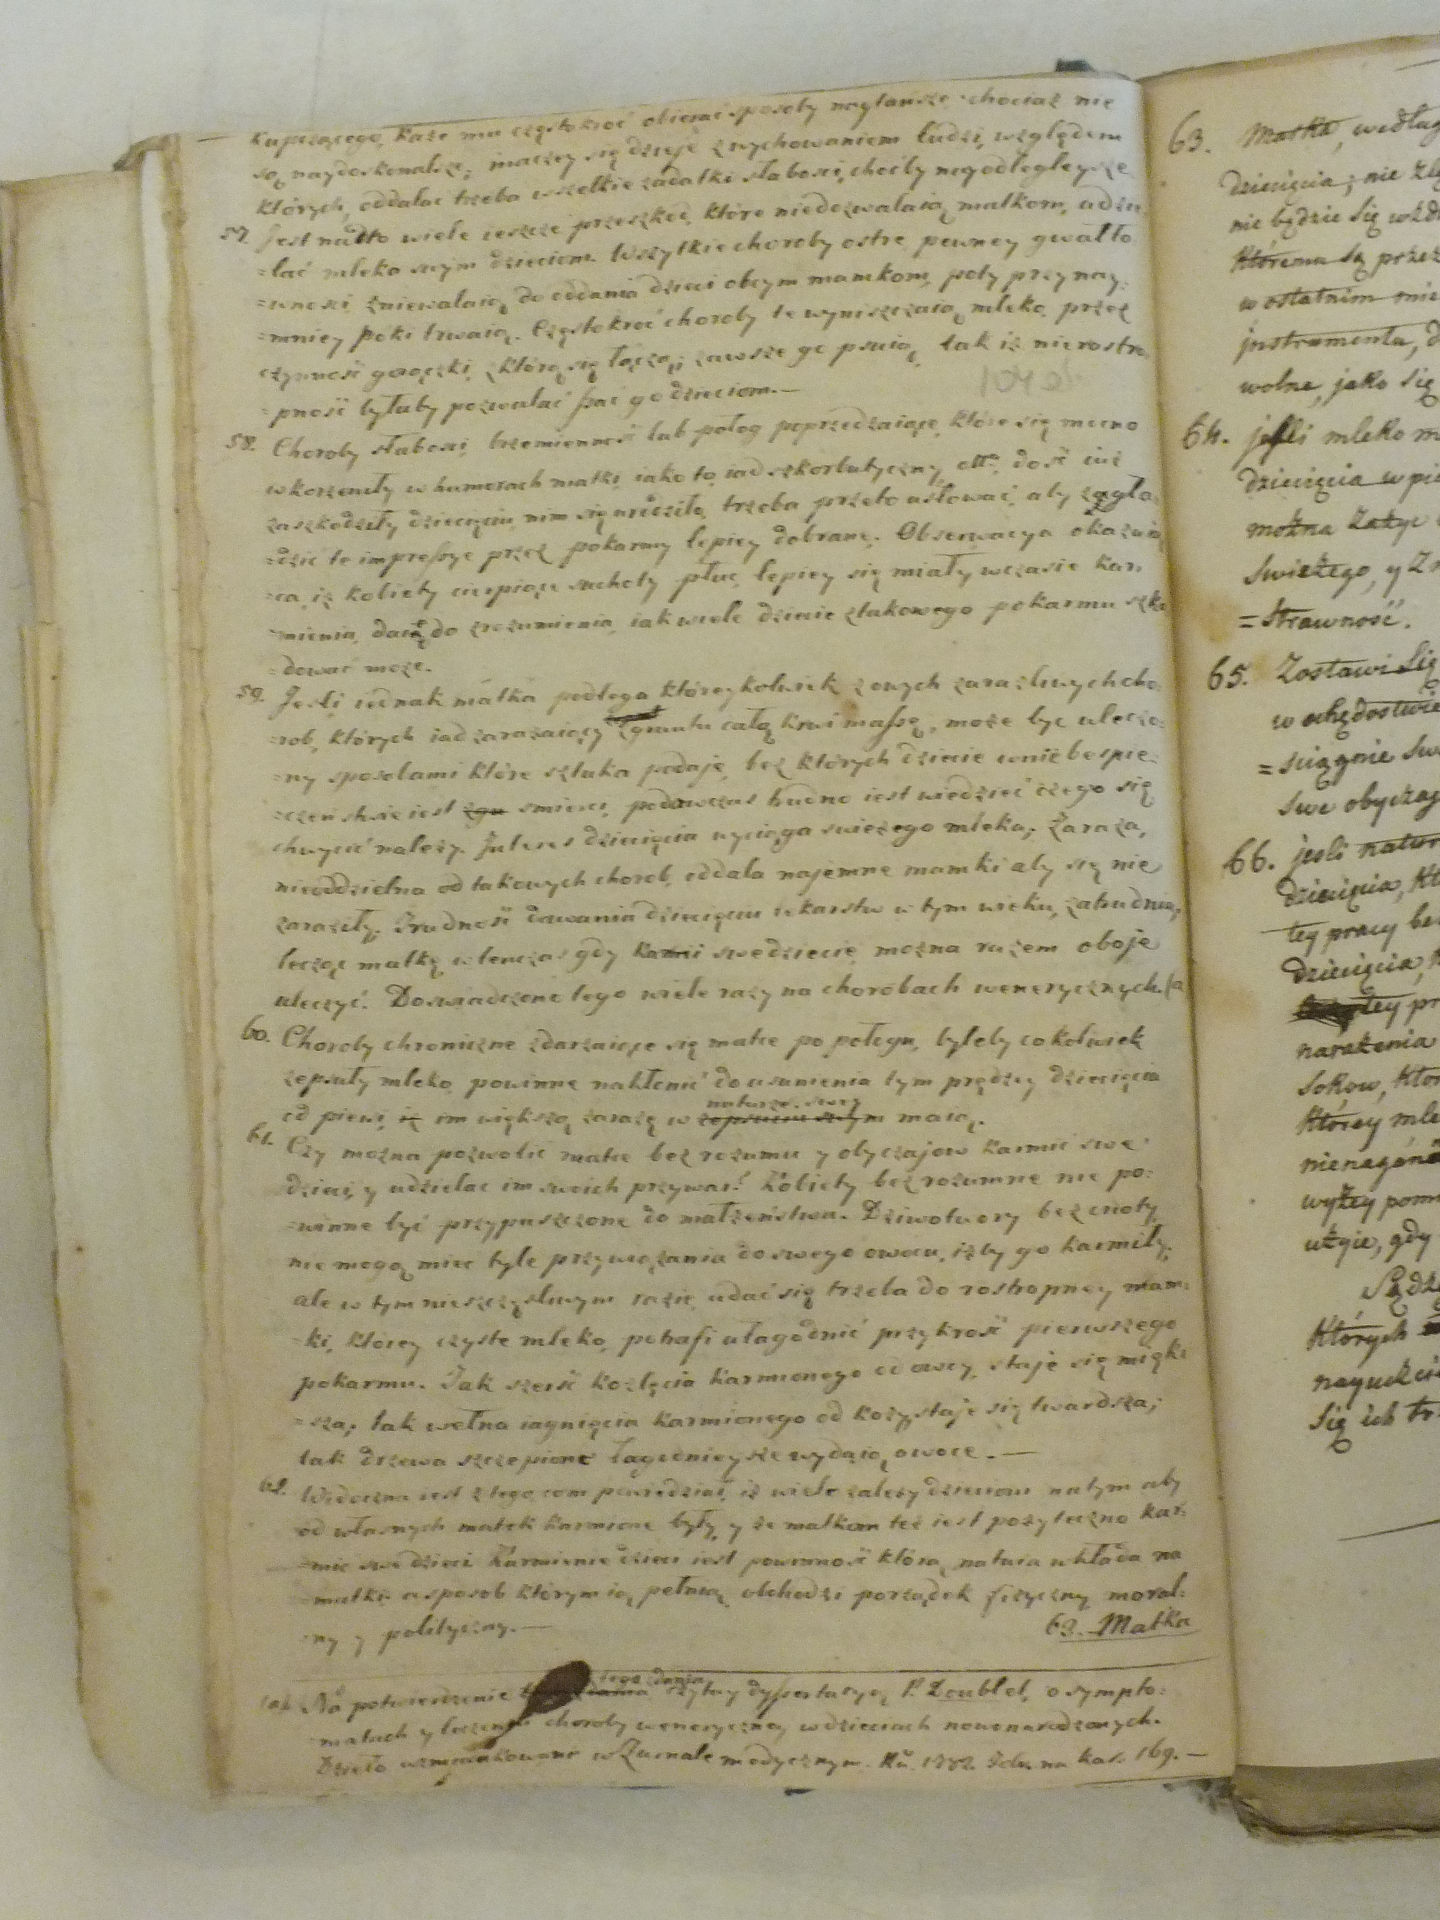 kupczącego, każe mu częstokroć obierać sposoby naytańsze, chociaż nie
są naydoskonalsze; inaczey się dzieje z wychowaniem ludzi, względem
których, oddalać trzeba wszelkie zadatki słabości, choćby nayodlegleysze
57. Jest nadto wiele ieszcze przeszkod, które niedozwalaią matkom, udzie
=lać mleka swym dzieciom. Wszytkie choroby ostre, pewney gwałto
=wności zniewalaią do oddania dzieci obcym mamkom, poty przynay:
=mniey poki trwaią. Częstokroć choroby te wyniszczaią mleko, przez
czynność gorączki, z którą się łączą; zawsze go psuią, tak iż nierostro
=pność byłaby pozwalać ssać go dzieciom.—
58. Choroby słabości, brzemienność lub połog poprzedzaiące, które się mocno
wkorzeniły w humorach matki, iako to, iad szkorbutyczny, ettc, dość iuż
zaszkodziły dziecięciu, nim się urodziło, trzeba przeto usiłować, aby zagła
=dzić te impressye przez pokarmy lepiey dobrane. Obserwacya okazuią
=ca, iż kobiety cierpiące suchoty płuc, lepiey się miały wczasie kar
=mienia, daią do zrozumienia, iak wiele dziecie z takowego pokarmu szko
=dować może.
59. Jeśli iednak matka podlega któreykolwiek z owych zaraźliwych cho
=rob, których iad zarażaiący z gruntu całą krwi massę, może być uleczo:
=ny sposobami które sztuka podaje, bez których dziecie w niebespie:
=czeństwie iest zgu smierci, podowczas trudno iest wiedzieć czego się
chwycić należy. Interes dziecięcia wyciąga swieżego mleka; Zaraza,
nieoddzielna od takowych chorob, oddala najemne mamki aby się nie
zaraziły. Trudność dawania dziecięciu lekarstw w tym wieku, zatrudnia,
lecząc matkę wtenczas gdy karmi swe dziecie, można razem oboje
uleczyć. Doswiadczono tego wiele razy na chorobach wenerycznych. (a
60. Choroby chroniczne zdarzaiące się matce po połogu, byleby cokolwiek
zepsuły mleko, powinne nakłonić do usunienia tym prędzey dziecięcia
naturze swey
od piersi, im większą zarazę w zepsuciu swym maią.
61. Czy można pozwolić matce bez rozumu y obyczajow karmić swe
dzieci, y udzielac im swoich przywar? Kobiety bez rozumne nie po:
=winne być przypuszczone do małżeństwa. Dziwotwory bez cnoty,
nie mogą miec tyle przywiązania do swego owocu, iżby go karmiły;
ale w tym nieszczęśliwym razie, udać się trzeba do rostropney mam:
=ki, ktorey czyste mleko, potrafi ułagodnić przykrość pierwszego
pokarmu. Tak szersć kozlęcia karmionego od owcy, staje się mięk:
=sza; tak wełna iagnięcia karmionego od kozy, staje się twardsza;
tak drzewa szczepione łagodnieysze wydaią owoce.—
62. Widoczna iest z tego, com powiedział, iż wiele zależy dzieciom na tym aby
od własnych matek karmione były, y że matkom też iest pożyteczno kar:
=mic swe dzieci. Karmienie dzieci iest powinność którą natura wkłada na
=matki a sposob którym ią pełnią, obchodzi porządek fizyczny, moral:
=ny y polityczny.—
63. Matka
tego zdania
(a). Na potwierdzenie czytay dyssertacyą P. Doublet, o sympto:
=matach y leczeniu choroby weneryczney wdzieciach nowonarodzonych.
Dzieło wzmiankowane w Żurnale medycznym. Ru 1782. na kar. 169.—
63. Matka, według
dziecięcia; nie
nie będzie się
któremu są przez
w ostatnim
instrumenta,
wolne, jako się
64. jeśli mleko
dziecięcia w
można zażyc
swieżego, y
=strawność.
65. Zostawi się
w ochędostwie
=sciągnie
swe obyczaj
66. jeśli natur
dziecięcia,
tey pracy
dziecięcia,
tey
narażenia
sokow,
którey
wyżey
użycie, gdy
Których
się ich